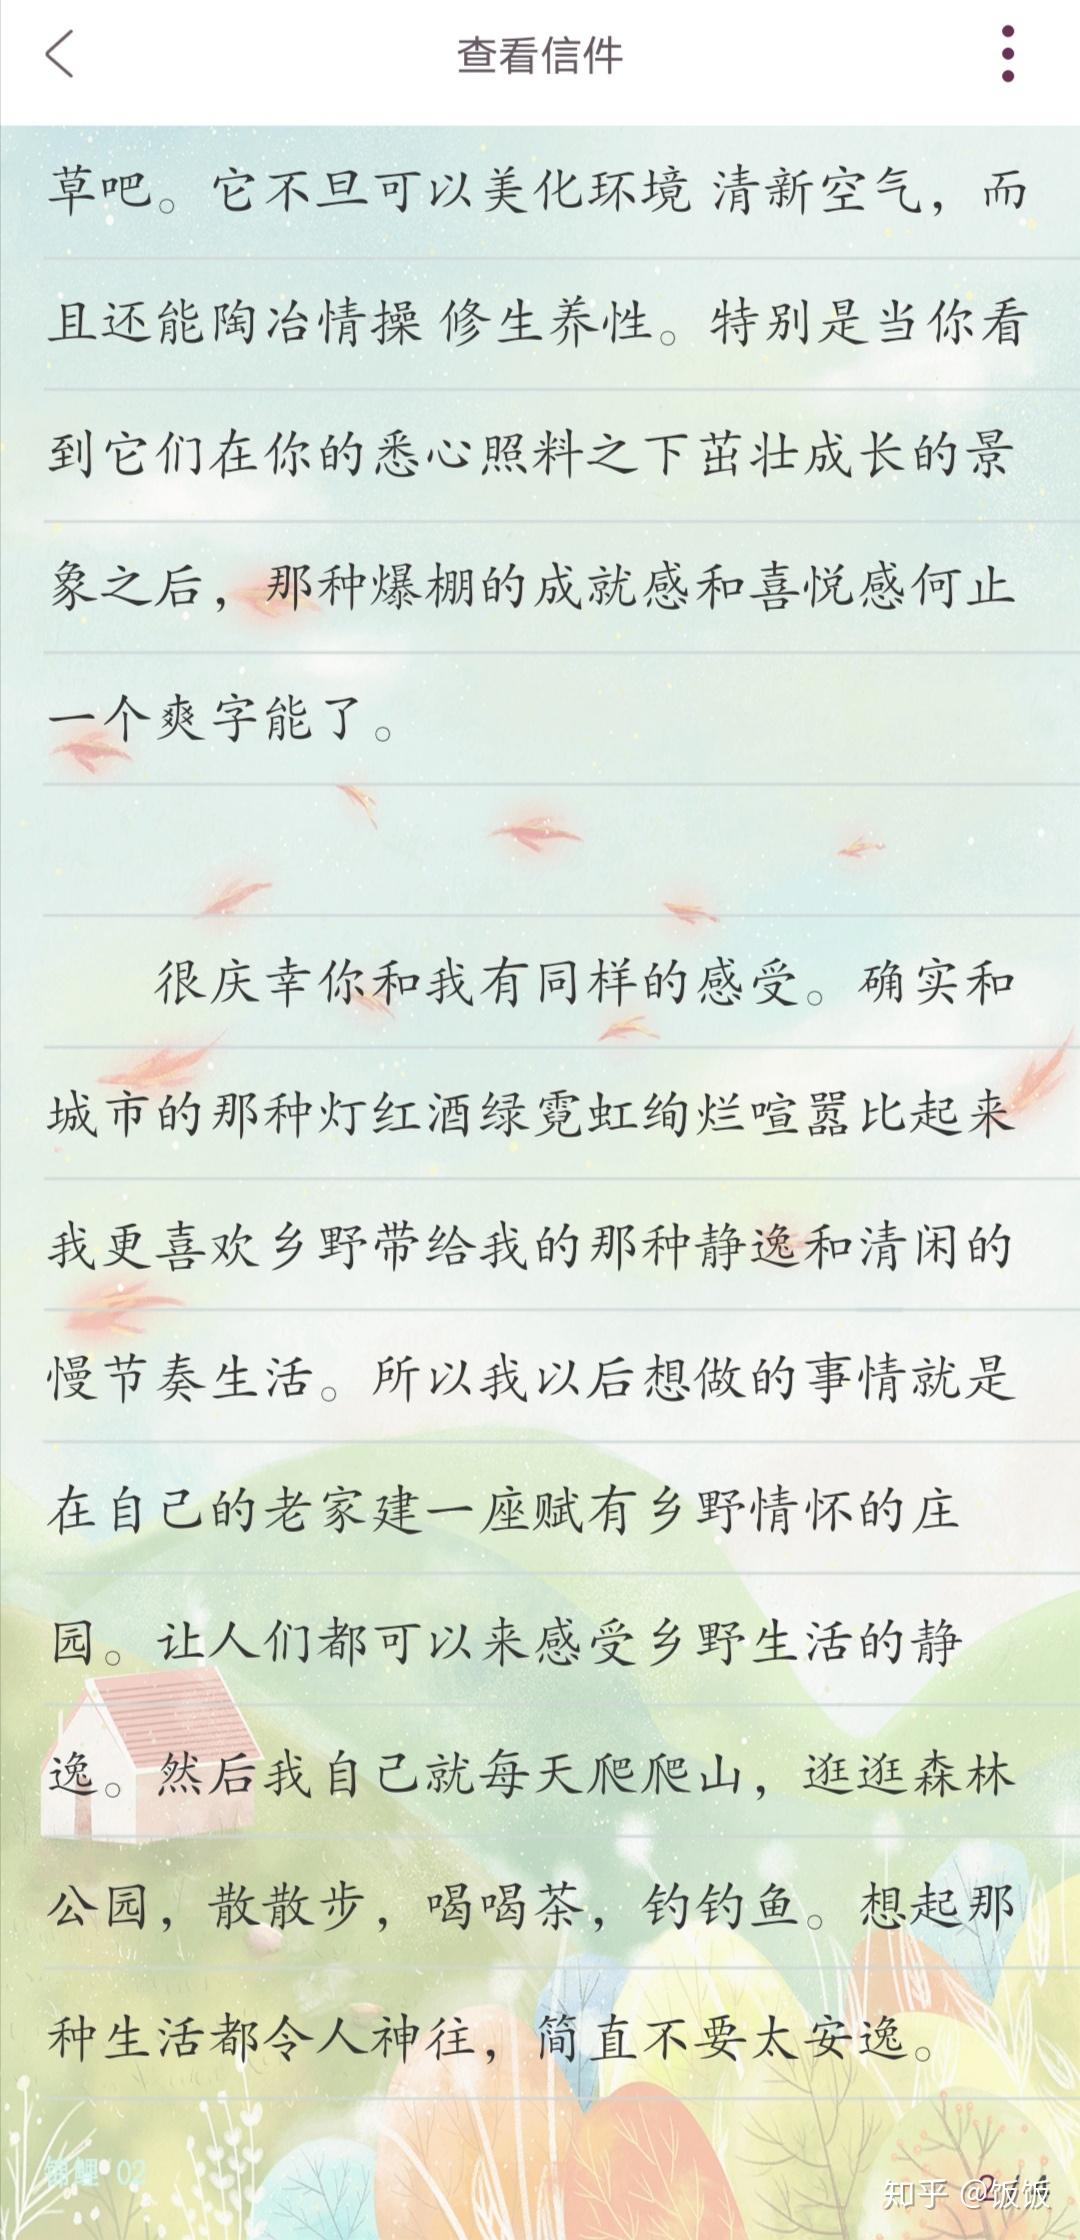 查看信件
草吧。它不旦可以美化环境 清新空气，而
且还能陶冶情操 修生养性。特别是当你看
到它们在你的悉心照料之下茁壮成长的景
象之后，那种爆棚的成就感和喜悦感何止
一个爽字能了。
很庆幸你和我有同样的感受。确实和
城市的那种灯红酒绿霓虹绚烂喧嚣比起来
我更喜欢乡野带给我的那种静逸和清闲的
慢节奏生活。所以我以后想做的事情就是
在自己的老家建一座赋有乡野情怀的庄
园。让人们都可以来感受乡野生活的静
逸。然后我自己就每天爬爬山，逛逛森林
公园，散散步，喝喝茶，钓钓鱼。想起那
种生活都令人神往，简直不要太安逸。
锦鲤 02
知乎 @饭饭